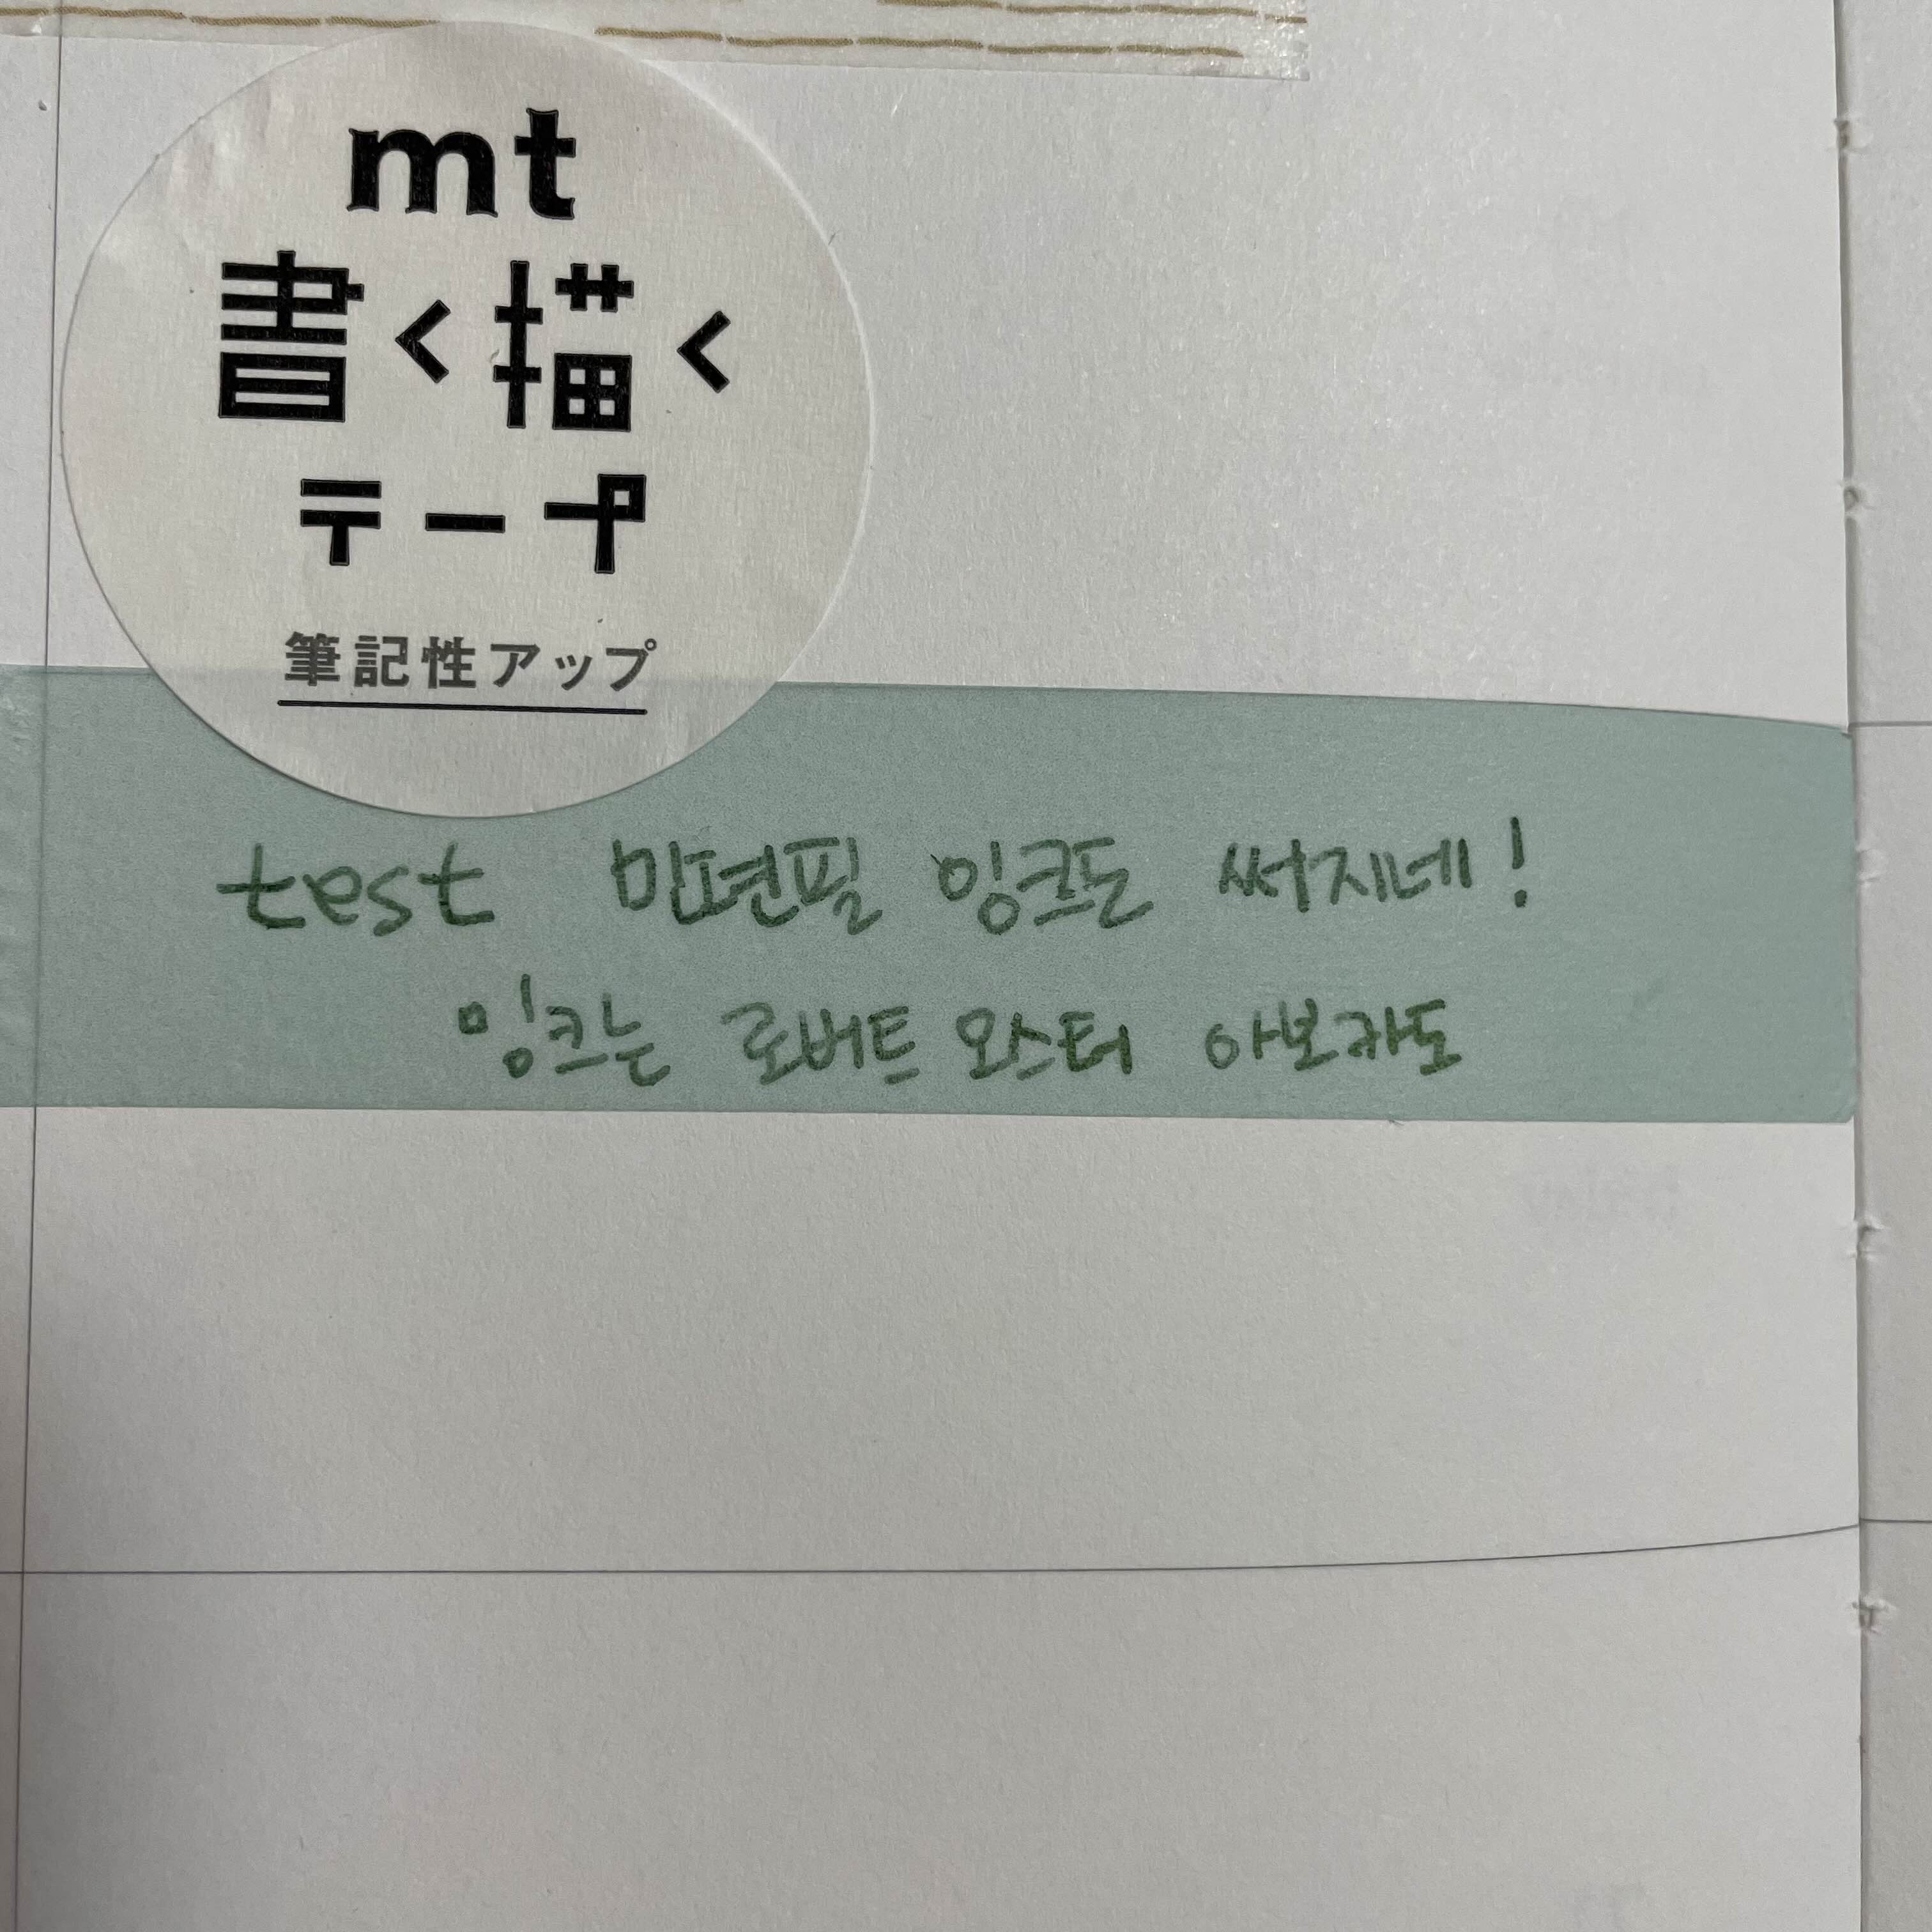 mt
書く描く
テープ
筆記性アップ
test 만년필 잉크도 써지네!
잉크는 로버트 오스터 아보카도